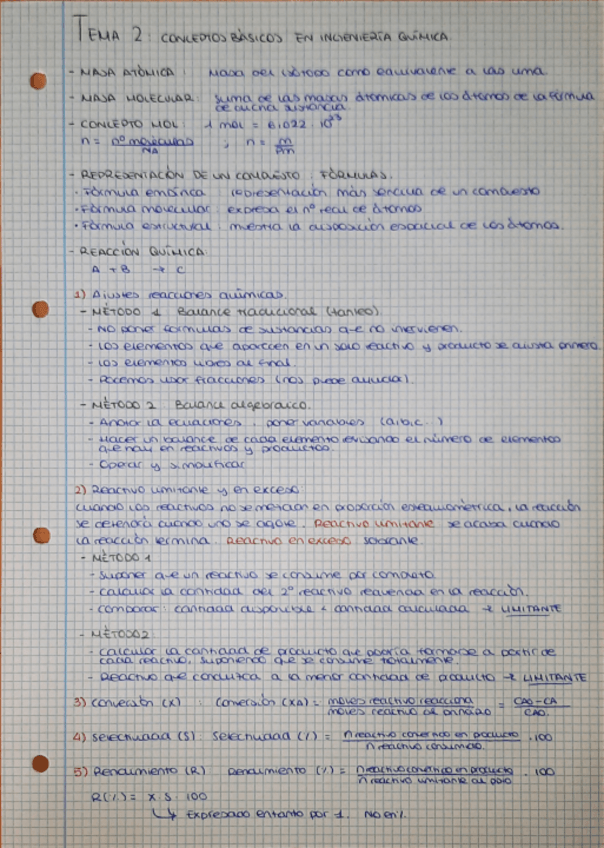 TEMA 2: CONCEPTOS BÁSICOS EN INGENIERÍA QUÍMICA.
- MASA ATÓMICA: Masa del isótopo como equivalente a las uma.
- MASA MOLECULAR: suma de las masas atómicas de los átomos de la fórmula
de dicha sustancia
- CONCEPTO MOL: 1 mol = 6,022 · 10²³
n = nº moléculas / NA ; n = m / Pm
- REPRESENTACIÓN DE UN COMPUESTO: FÓRMULAS.
· Fórmula empírica: representación más sencilla de un compuesto
· Fórmula molecular: expresa el nº real de átomos
· Fórmula estructural: muestra la disposición espacial de los átomos.
- REACCIÓN QUÍMICA:
A + B → C
1) Ajustes reacciones químicas.
- MÉTODO 1: Balance tradicional (tanteo)
- No poner fórmulas de sustancias que no intervienen.
- Los elementos que aparecen en un solo reactivo y producto se ajusta primero.
- Los elementos libres al final.
- Podemos usar fracciones (nos puede ayudar).
- MÉTODO 2: Balance algebraico.
- Anotar la ecuaciones, poner variables (a,b,c...)
- Hacer un balance de cada elemento el número de elementos
que hay en reactivos y productos.
- Operar y simplificar
2) Reactivo limitante y en exceso:
Cuando los reactivos no se mezclan en proporción estequiométrica, la reacción
se detendrá cuando uno se agote. Reactivo limitante se acaba cuando
la reacción termina. Reactivo en exceso sobrante.
- MÉTODO 1
- Suponer que un reactivo se consume por completo.
- Calcular la cantidad del 2º reactivo requerida en la reacción.
- Comparar: cantidad disponible < cantidad calculada → LIMITANTE
- MÉTODO 2:
- Calcular la cantidad de producto que podría formarse a partir de
cada reactivo, suponiendo que se consume totalmente.
- Reactivo que conduzca a la menor cantidad de producto → LIMITANTE
3) Conversión (X): Conversión (XA) = moles reactivo reacciona / moles reactivo al principio = CA0 - CA / CA0.
4) Selectividad (S): Selectividad (%) = n reactivo convertido en producto / n reactivo consumido. · 100
5) Rendimiento (R) Rendimiento (%) = n reactivo convertido en producto / n reactivo limitante al ppio · 100
R(%) = X · S · 100
↳ Expresado en tanto por 1. No en %.